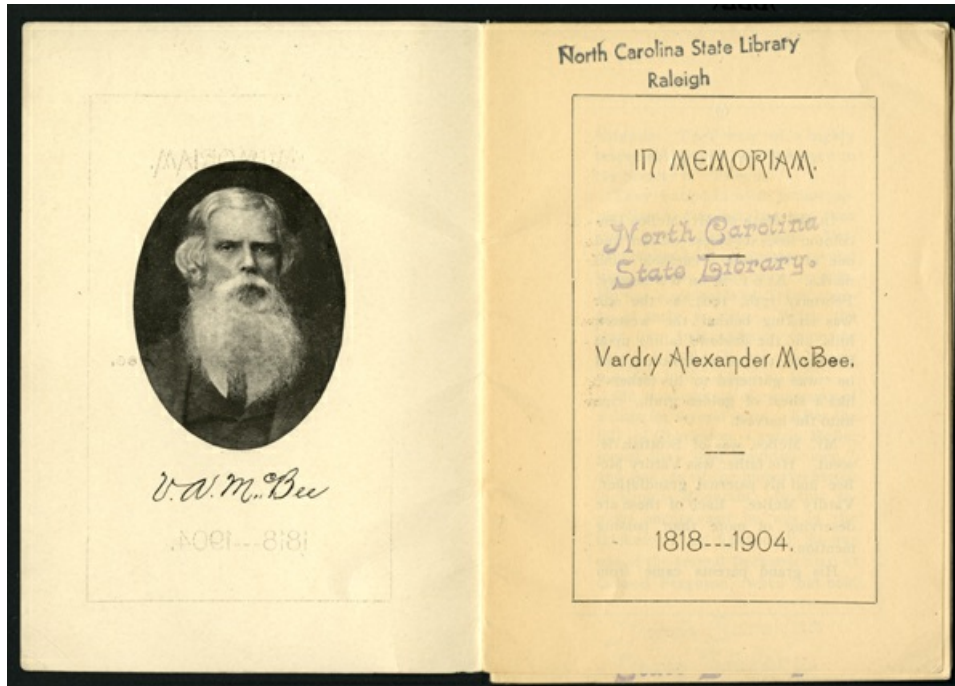 V. A. McBee
North Carolina State Library
Raleigh
IN MEMORIAM.
North Carolina
State Library.
Vardry Alexander McBee.
1818---1904.